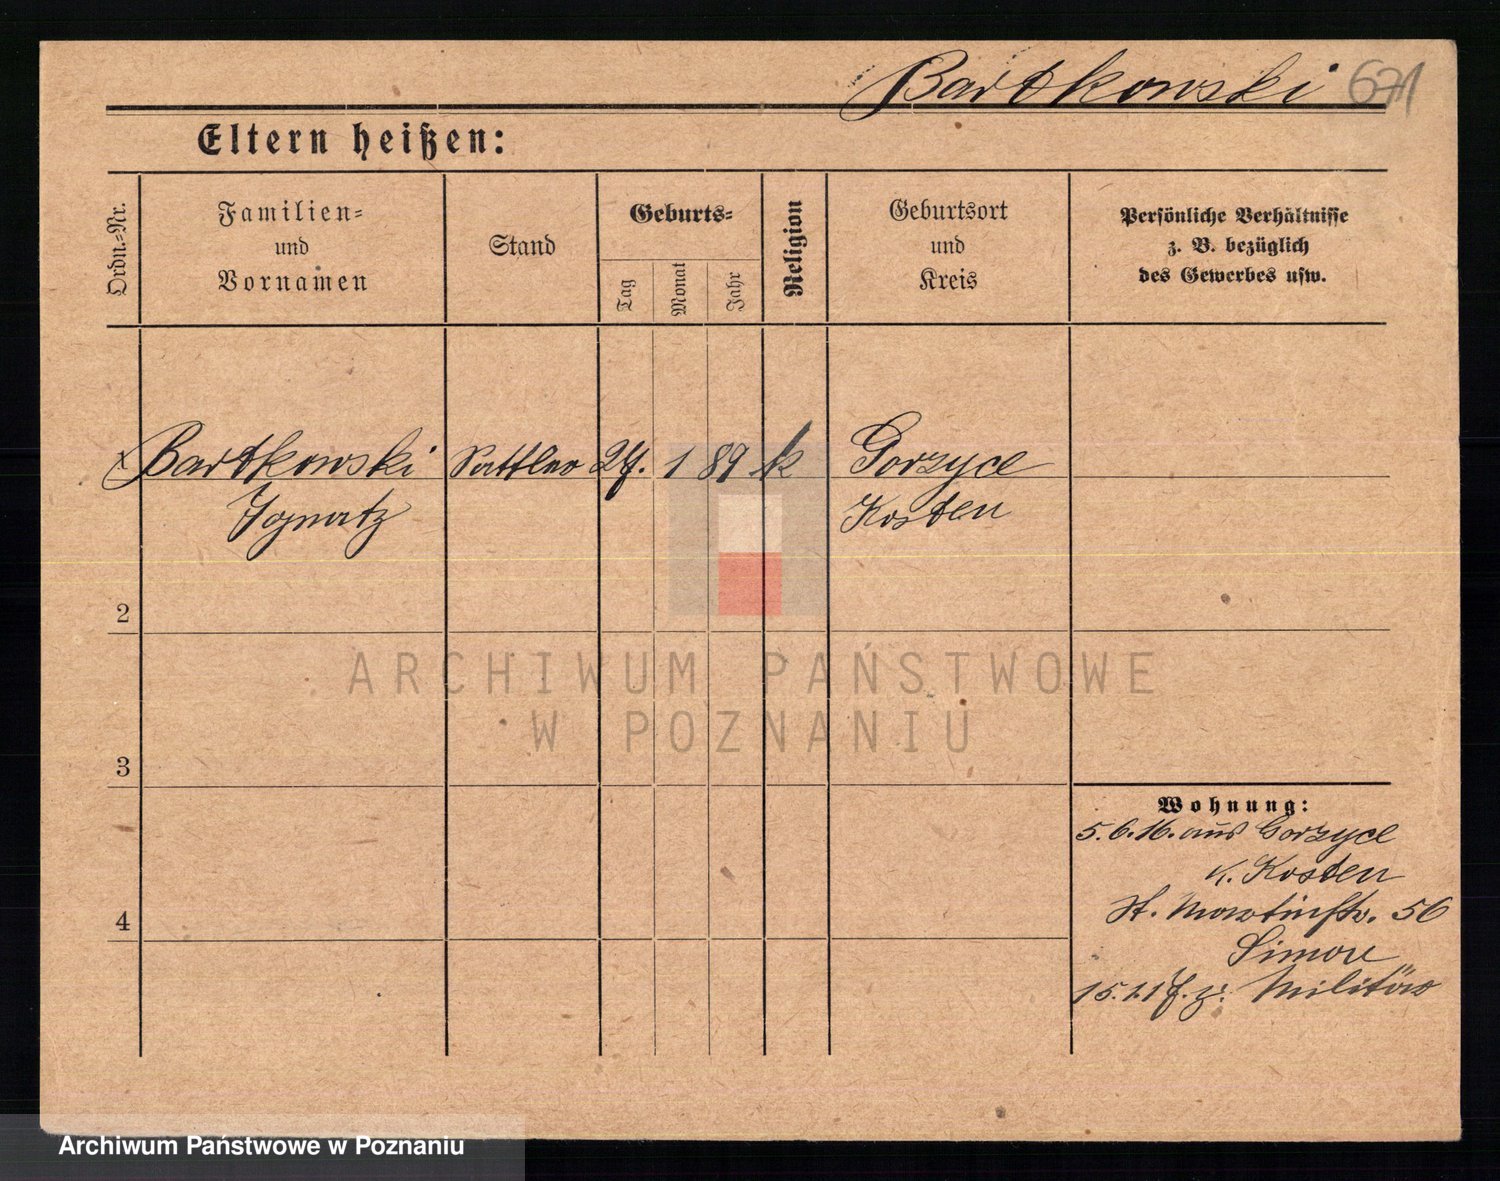 Bartkowski 671
Eltern heißen:
Ordn.-Nr.
Familien-
und
Vornamen
Stand
Geburts-
Tag
Monat
Jahr
Religion
Geburtsort
und
Kreis
Persönliche Verhältnisse
z. B. bezüglich
des Gewerbes usw.
1 Bartkowski Sattler 27. 1 89 k Gorzyce
Ignatz Kosten
2
3
4
Wohnung:
5.6.16. aus Gorzyce
K. Kosten
St. Martinstr. 56
Simon
15.1.17. z. Militär
ARCHIWUM PAŃSTWOWE
W POZNANIU
Archiwum Państwowe w Poznaniu